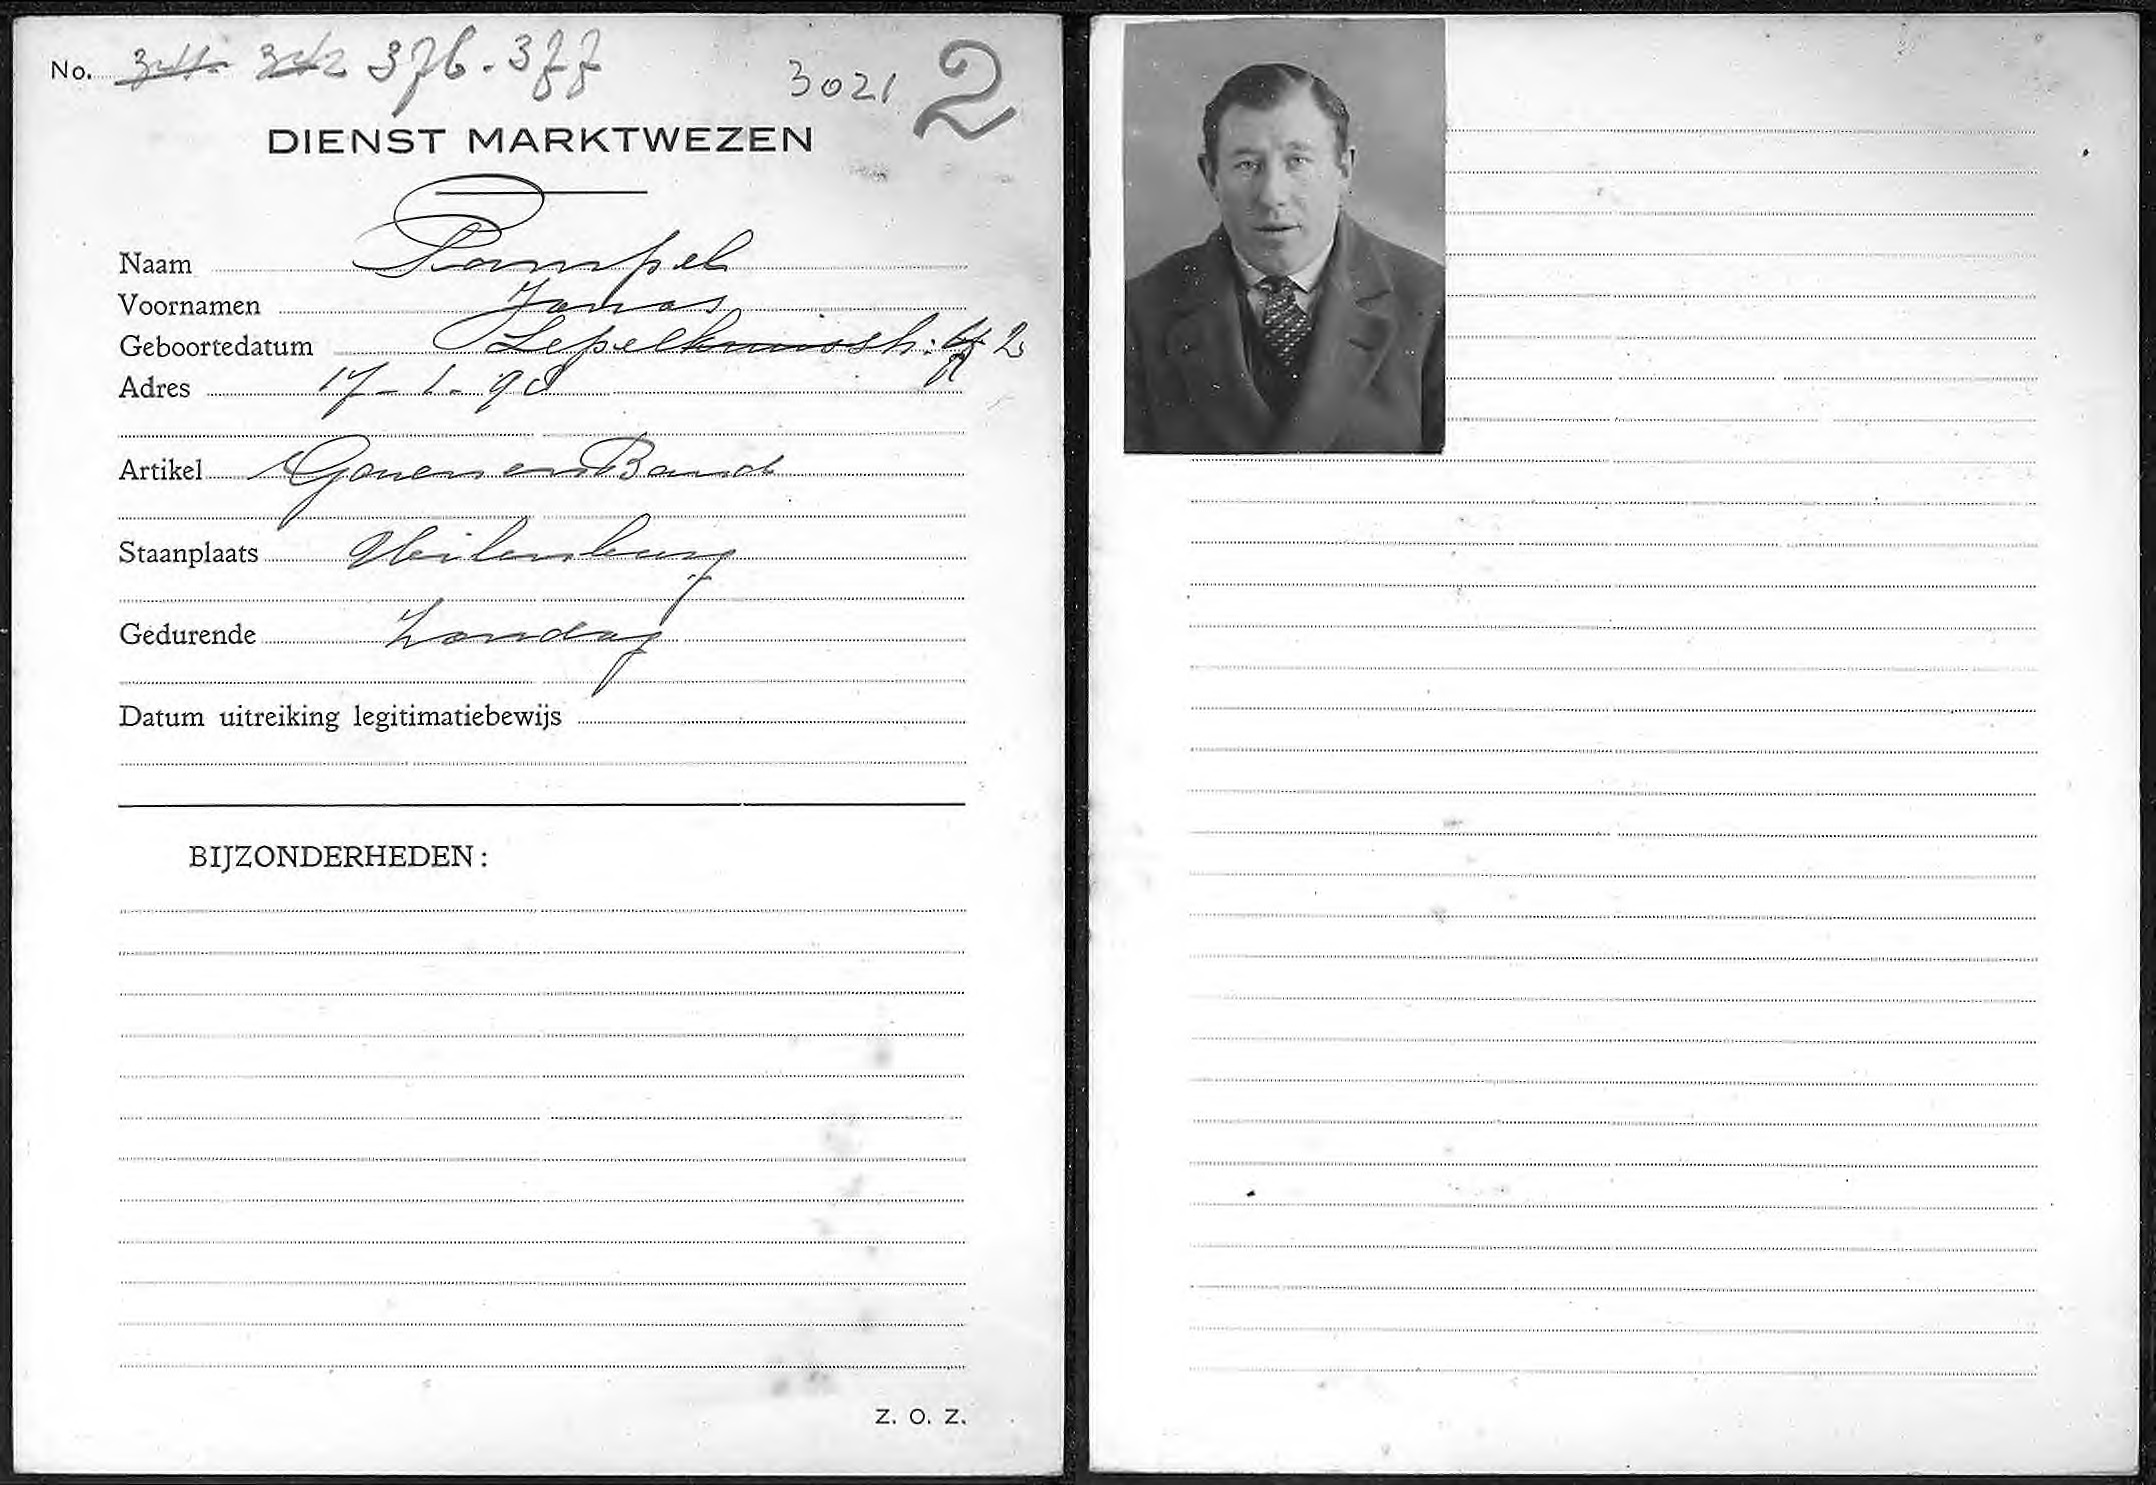 No. 341. 342 376. 377 3021 2
DIENST MARKTWEZEN
Naam Pampel
Voornamen Jonas
Geboortedatum Lepelkruisstr: 2
Adres 17-1-98
Artikel Garen en Band
Staanplaats Uilenburg
Gedurende Zondag
Datum uitreiking legitimatiebewijs
BIJZONDERHEDEN:
Z. O. Z.